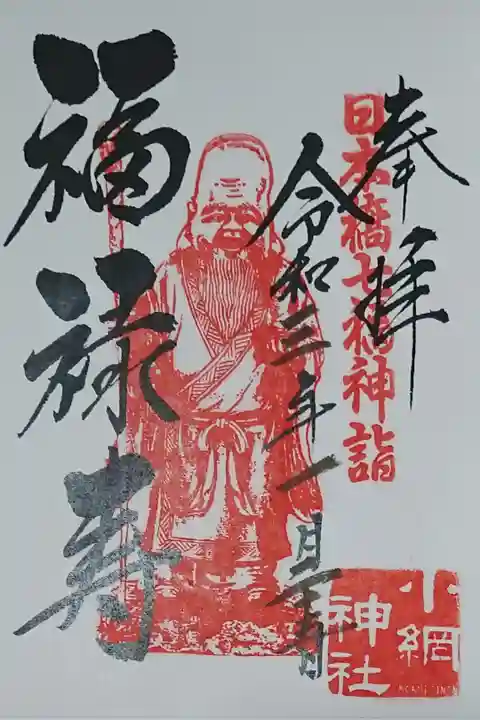 奉拝
日本橋七福神詣
令和三年一月五日
福禄寿
小網
神社